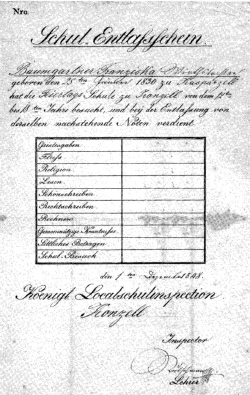 Nro.
Schul-Entlaßschein.
Baumgartner Franziska
geboren den 25ten 1830 zu
hat die Feiertags Schule zu Konzell von dem 12ten
bis 18ten Jahre besucht, und bey der Entlassung von
derselben nachstehende Noten verdient.
Geistesgaben
Fleiss
Religion
Lesen
Schönschreiben
Rechtschreiben
Rechnen
Gemeinnützige Kenntnisse
Sittliches Betragen
Schul-Besuch
den 1ten Dezember 1848.
Koenigl. Localschulinspection
Konzell
Inspector
Lehrer